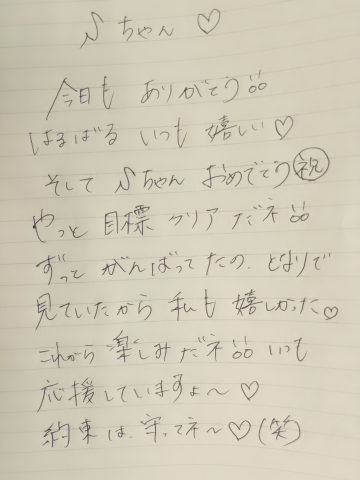 Sちゃん♡
今日も ありがとう!!
はるばる いつも 嬉しい♡
そして Sちゃん おめでとう㊗
やっと 目標 クリア だネ!!
ずっと がんばってたの、となりで
見ていたから 私も 嬉しかった♡
これから 楽しみだネ!! いつも
応援していますょ〜♡
約束は、守ってネ〜♡(笑)